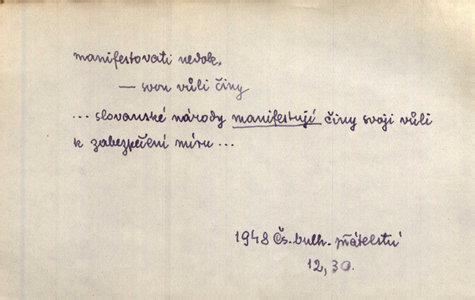 manifestovati nedok.
— svou vůli činy
... slovanské národy manifestují činy svoji vůli
k zabezpečení míru ...
1948 Čs.-bulh. přátelství
12, 30.